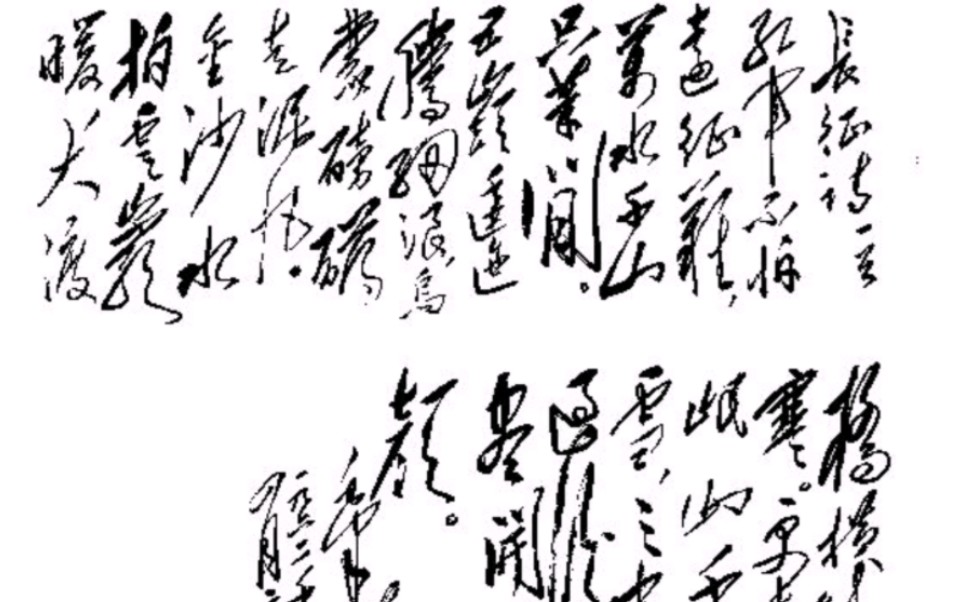 長征詩一首
紅軍不怕
遠征難,
萬水千山
只等閒。
五嶺逶迤
騰細浪,烏
蒙磅礴
走泥丸。
金沙水
拍雲巖
暖大渡
橋橫
寒。更
岷山千
雪,三軍
過後
盡開
顏。
毛